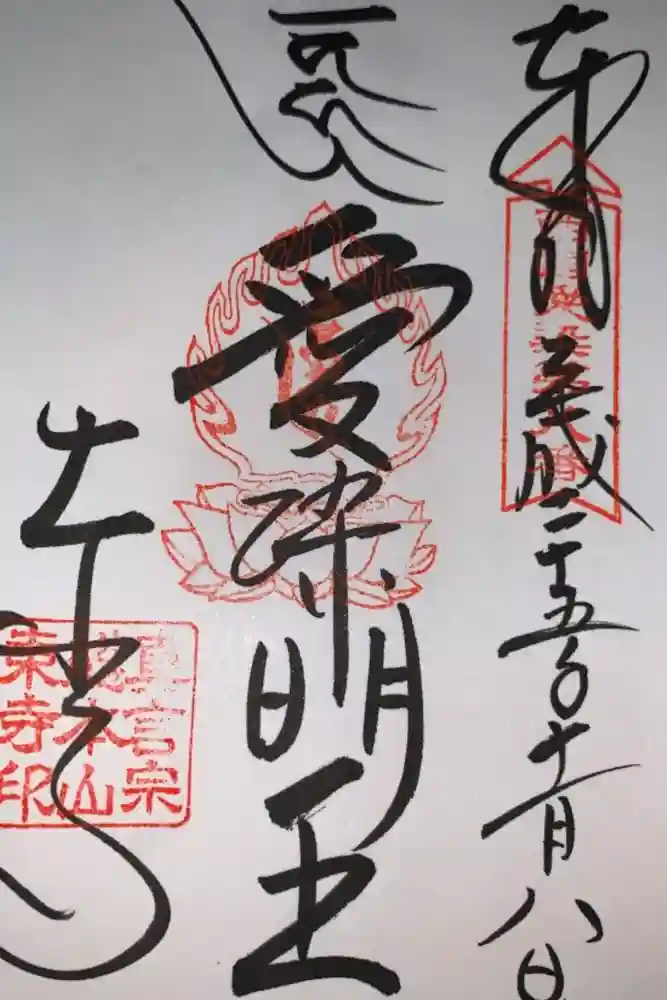 奉拝 平成二十五年十一月八日
愛染明王
東寺
真言宗
總本山
東寺印